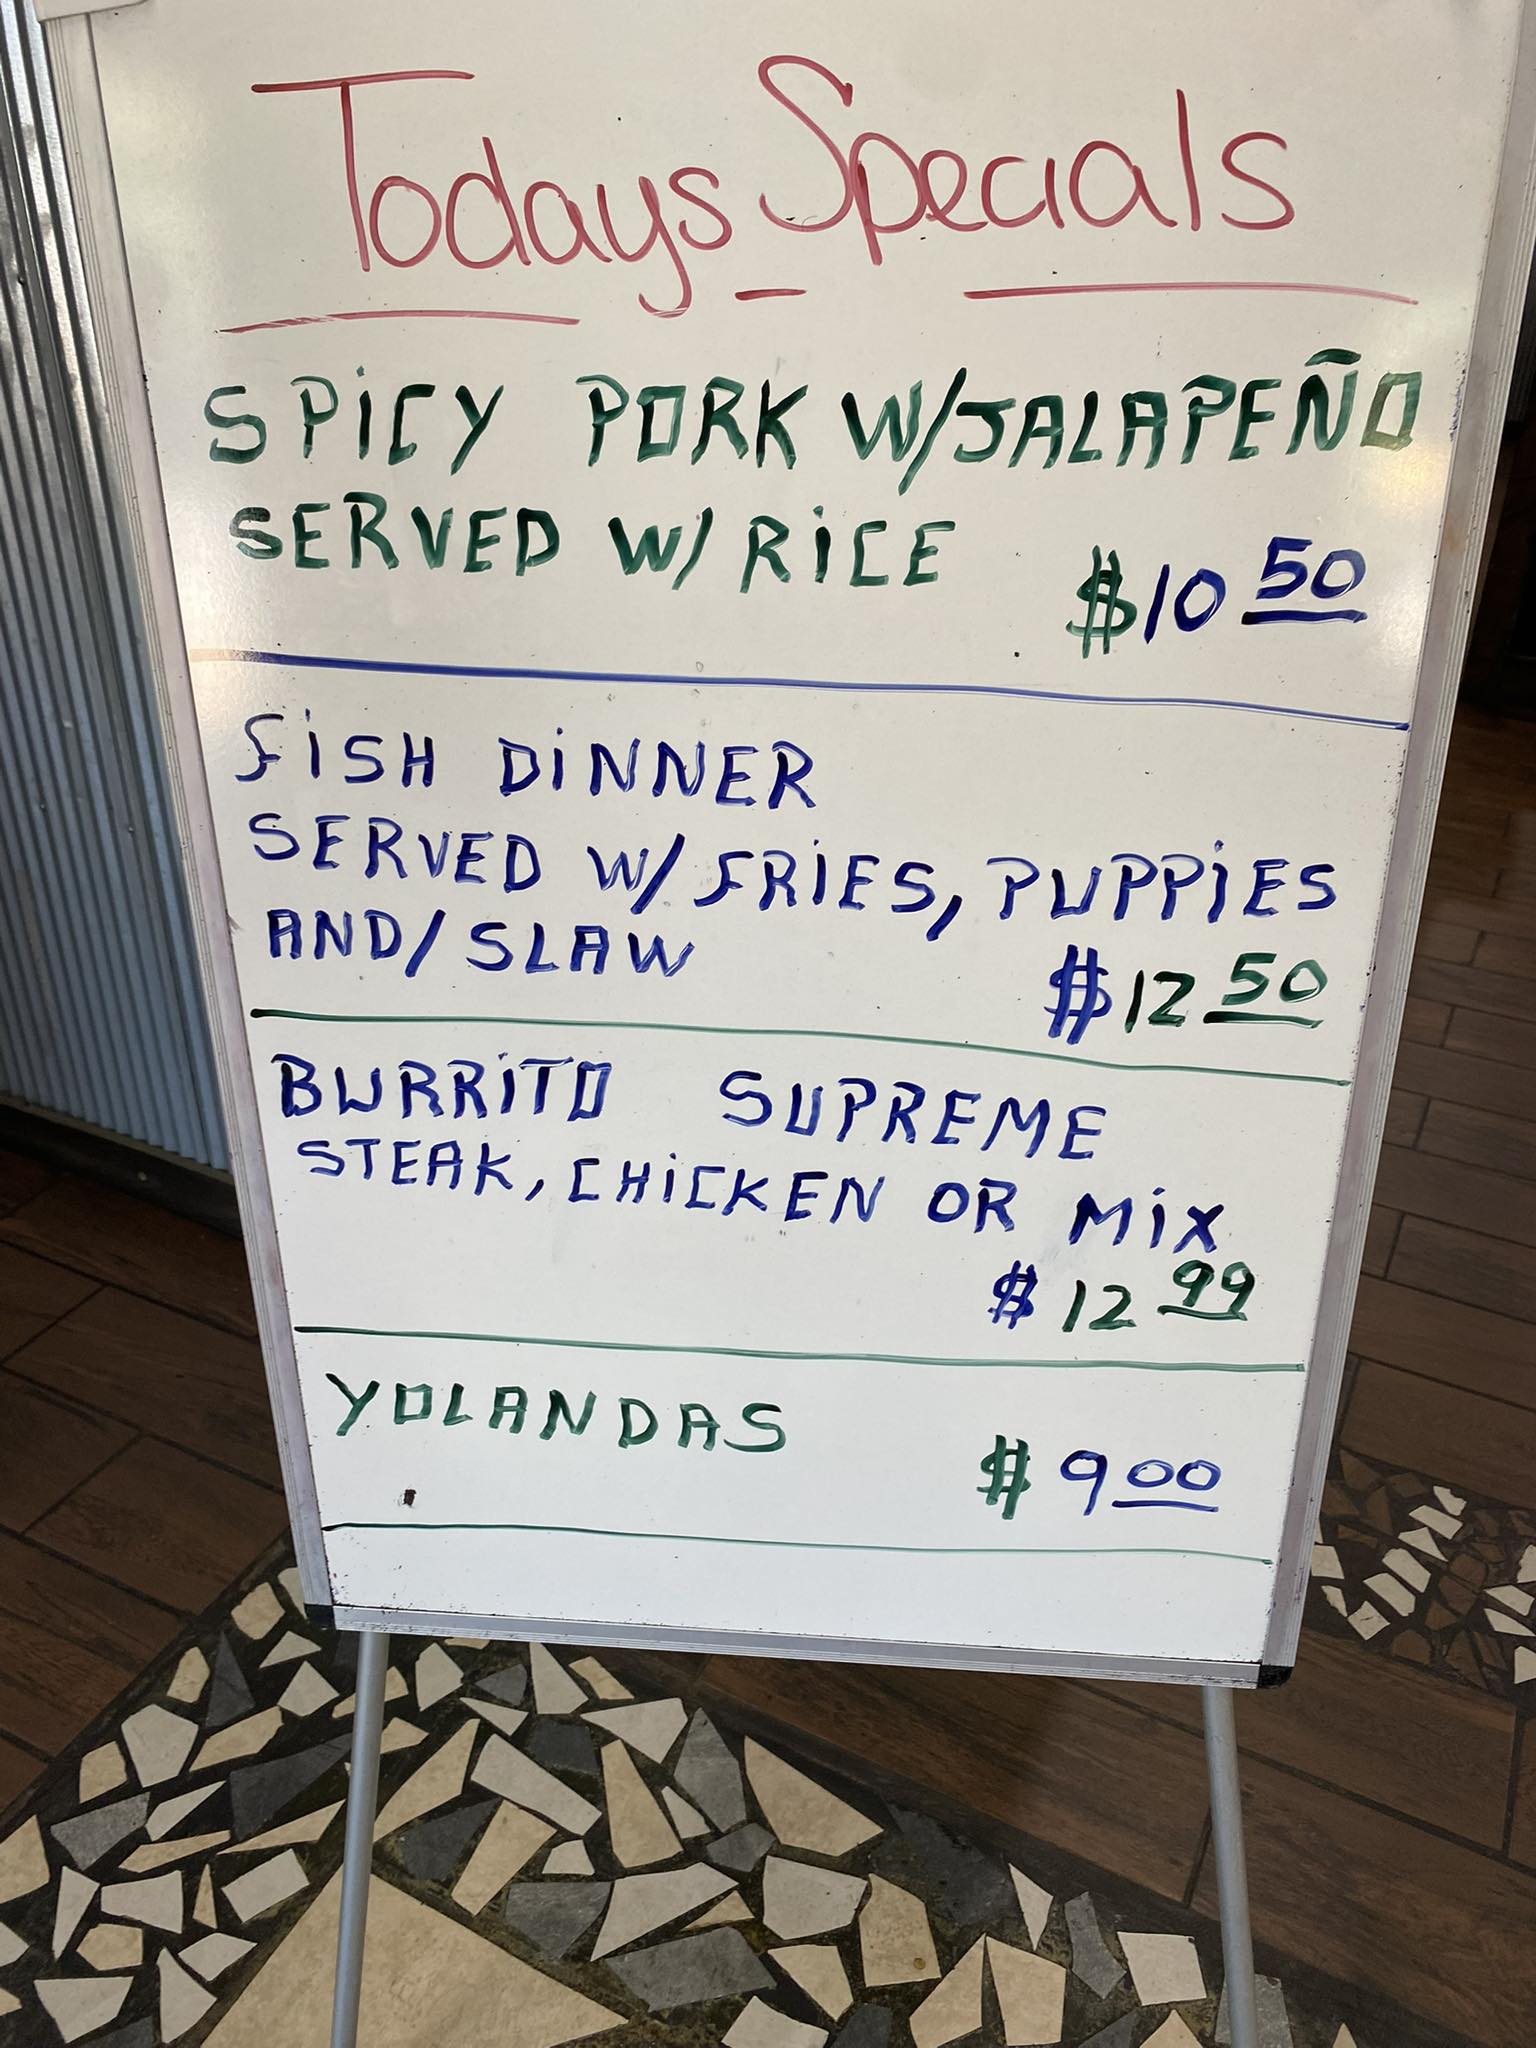 Todays Specials
SPiCY PORK W/JALAPEÑO
SERVED W/ RiCE $10 50
FiSH DiNNER
SERVED W/ FRiES, PUPPiES
AND/SLAW $12 50
BURRiTO SUPREME
STEAK, CHiCKEN OR MiX
$12 99
YOLANDAS $9 00